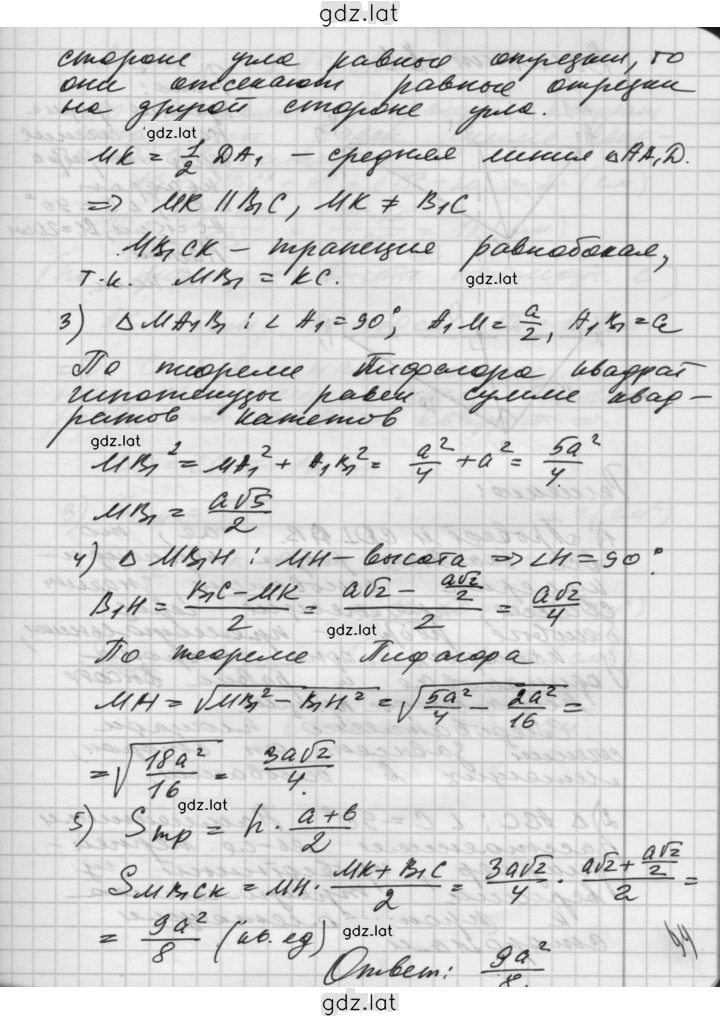 gdz.latt
стороне угла равные отрезки, то
они отсекают равные отрезки
на другой стороне угла.
gdz.lat
MK = 1/2 DA₁ – средняя линия △AA₁D.
=> MK || B₁C, MK ≠ B₁C
MB₁CK – трапеция равнобокая,
gdz.lat
т.к. MB₁ = KC.
3) △MA₁B₁: ∠A₁ = 90°, A₁M = a/2, A₁B₁ = a
По теореме Пифагора квадрат
гипотенузы равен сумме квад-
ратов катетов
gdz.lat
MB₁² = MA₁² + A₁B₁² = a²/4 + a² = 5a²/4.
MB₁ = a√5/2
4) △MB₁H: MH – высота => ∠H = 90°.
B₁H = (B₁C – MK)/2 = (a√2 – a√2/2)/2 = a√2/4
gdz.lat
По теореме Пифагора
MH = √(MB₁² – B₁H²) = √(5a²/4 – 2a²/16) =
= √(18a²/16) = 3a√2/4.
gdz.lat
5) Sтр = h · (a+b)/2
SMB₁CK = MH · (MK + B₁C)/2 = 3a√2/4 · (a√2 + a√2/2)/2 =
= 9a²/8 (кв. ед)
gdz.lat
99
Ответ: 9a²/8.
gdz.lat